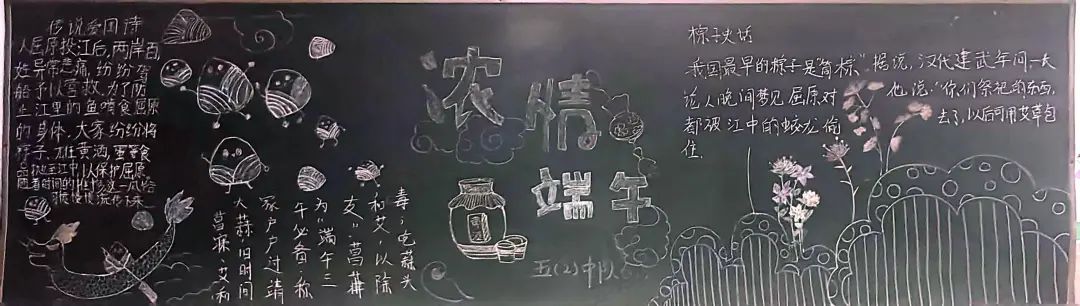 传说爱国诗
人屈原投江后,两岸百
姓异常悲痛,纷纷驾
船予以营救,为了防
止江里的鱼噬食屈原
的身体,大家纷纷将
粽子、雄黄酒,蛋等食
品抛至江中,以保护屈原
随着时间的推移这一风俗
慢慢流传下来
浓情
端午
五(2)中队
毒;吃蒜头
和艾,以除
友"菖蒲
为"端午三
午必备,称
家户户过端
大蒜,旧时间
菖蒲、艾和
粽子史话
我国最早的粽子是"筒粽"据说,汉代建武年间,一长
沙人晚间梦见屈原对他说:"你们祭祀的东西,
都被江中的蛟龙偷去了,以后可用艾草包
住.